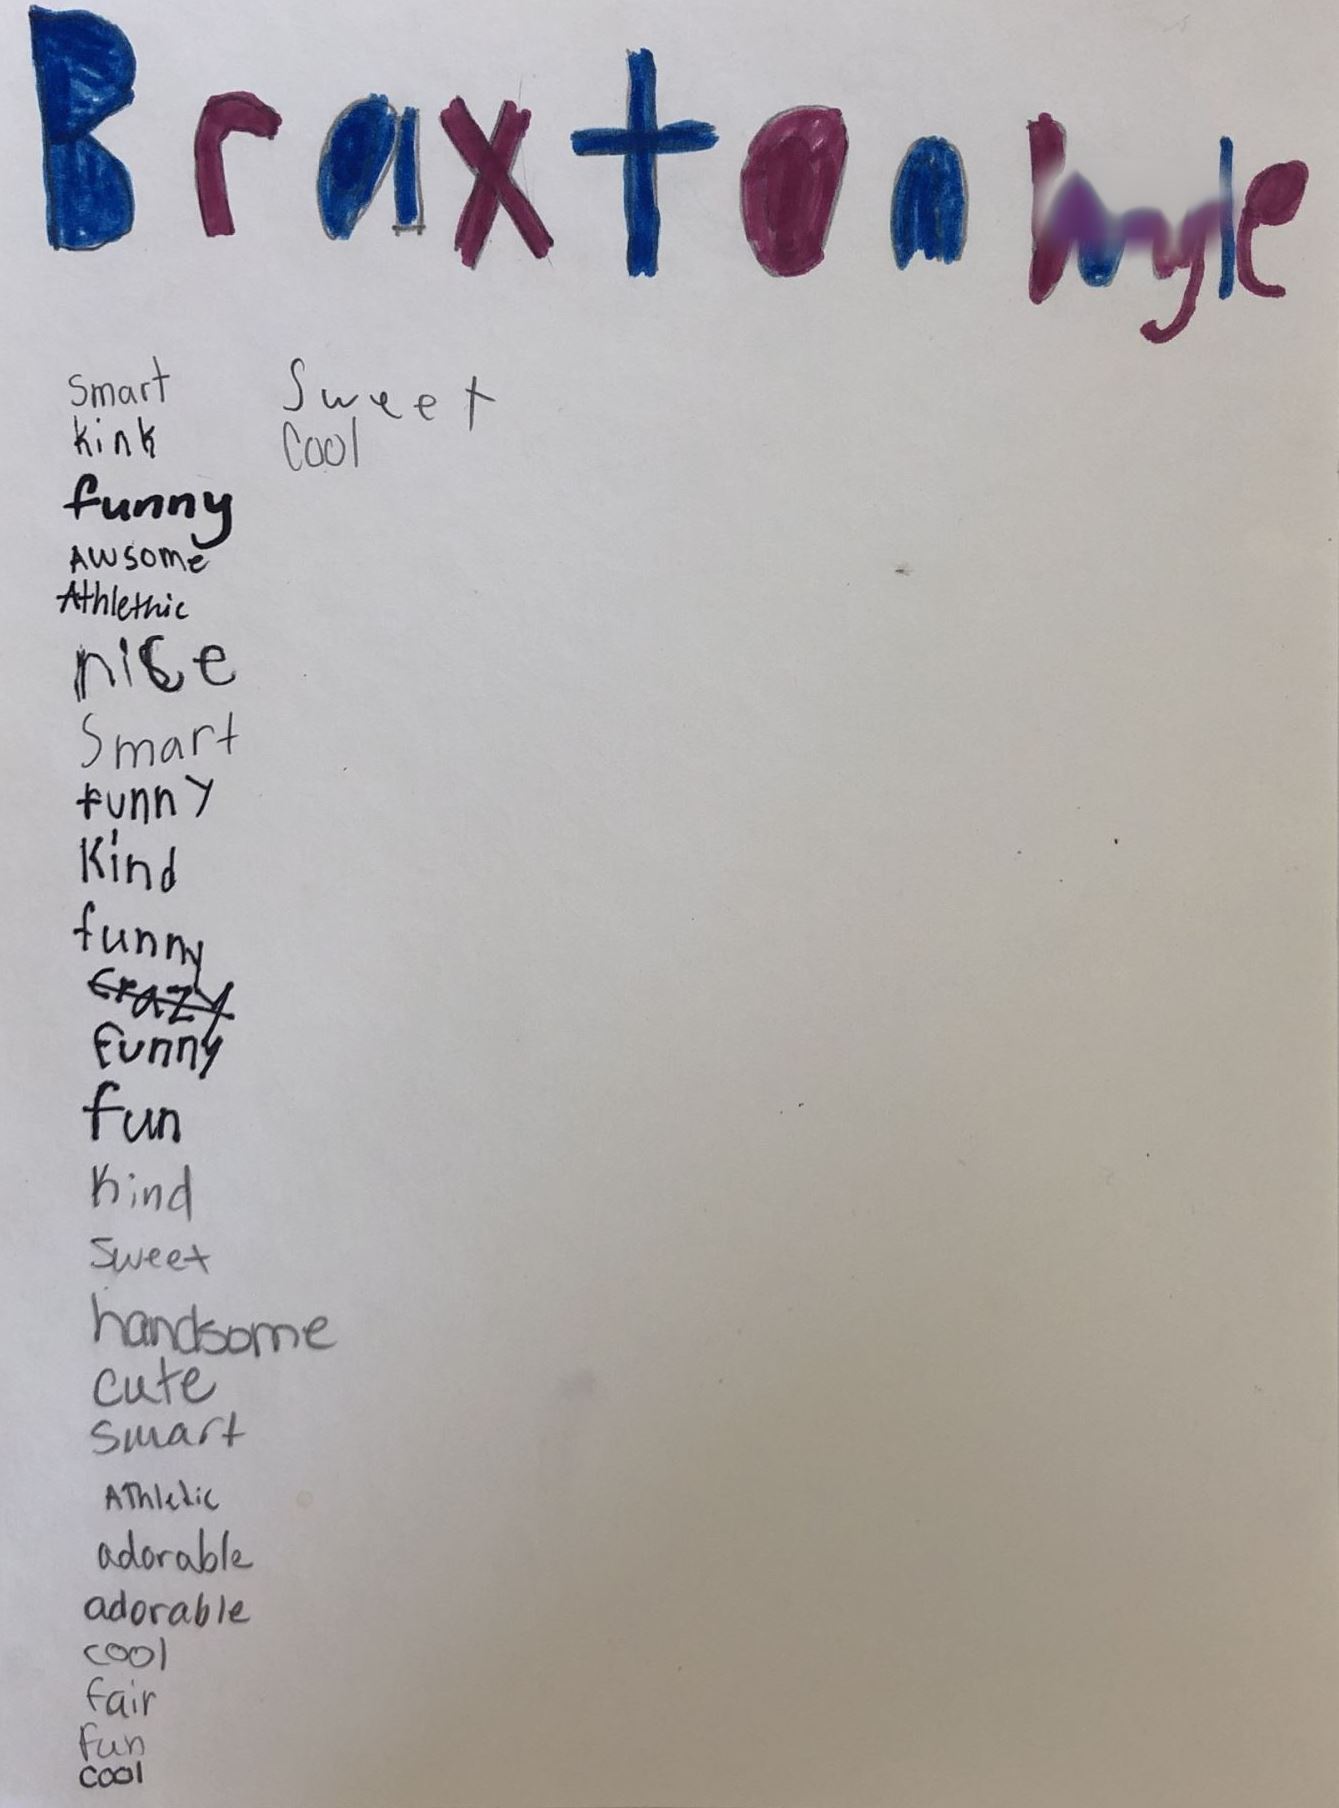 Braxton
Smart
kink
funny
AWsome
Athlethic
nice
Smart
funny
Kind
funny
crazy
funny
fun
kind
Sweet
handsome
cute
smart
AThletic
adorable
adorable
cool
fair
fun
cool
Sweet
Cool